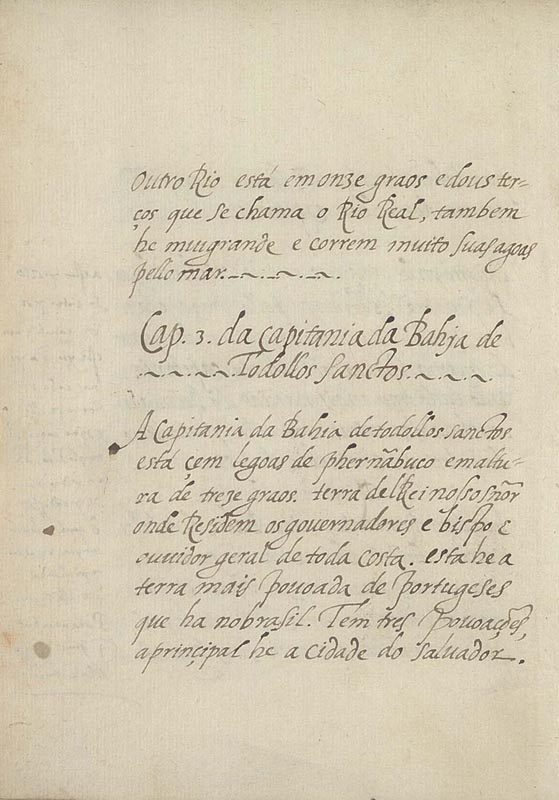 Outro Rio está em onze graos e dous ter-
ços que se chama o Rio Real, tambem
he mui grande e correm muito suas agoas
pello mar.
Cap. 3. da capitania da Bahia de
Todollos Sanctos.
A Capitania da Bahia de todollos sanctos
está çem legoas de phernãbuco em altu-
ra de trese graos. terra del Rei nosso sñor
onde Residem os governadores e bispo e
ouuidor geral de toda costa. esta he a
terra mais pouoada de portugeses
que ha no brasil. Tem tres pouoações,
a prinçipal he a cidade do saluador.